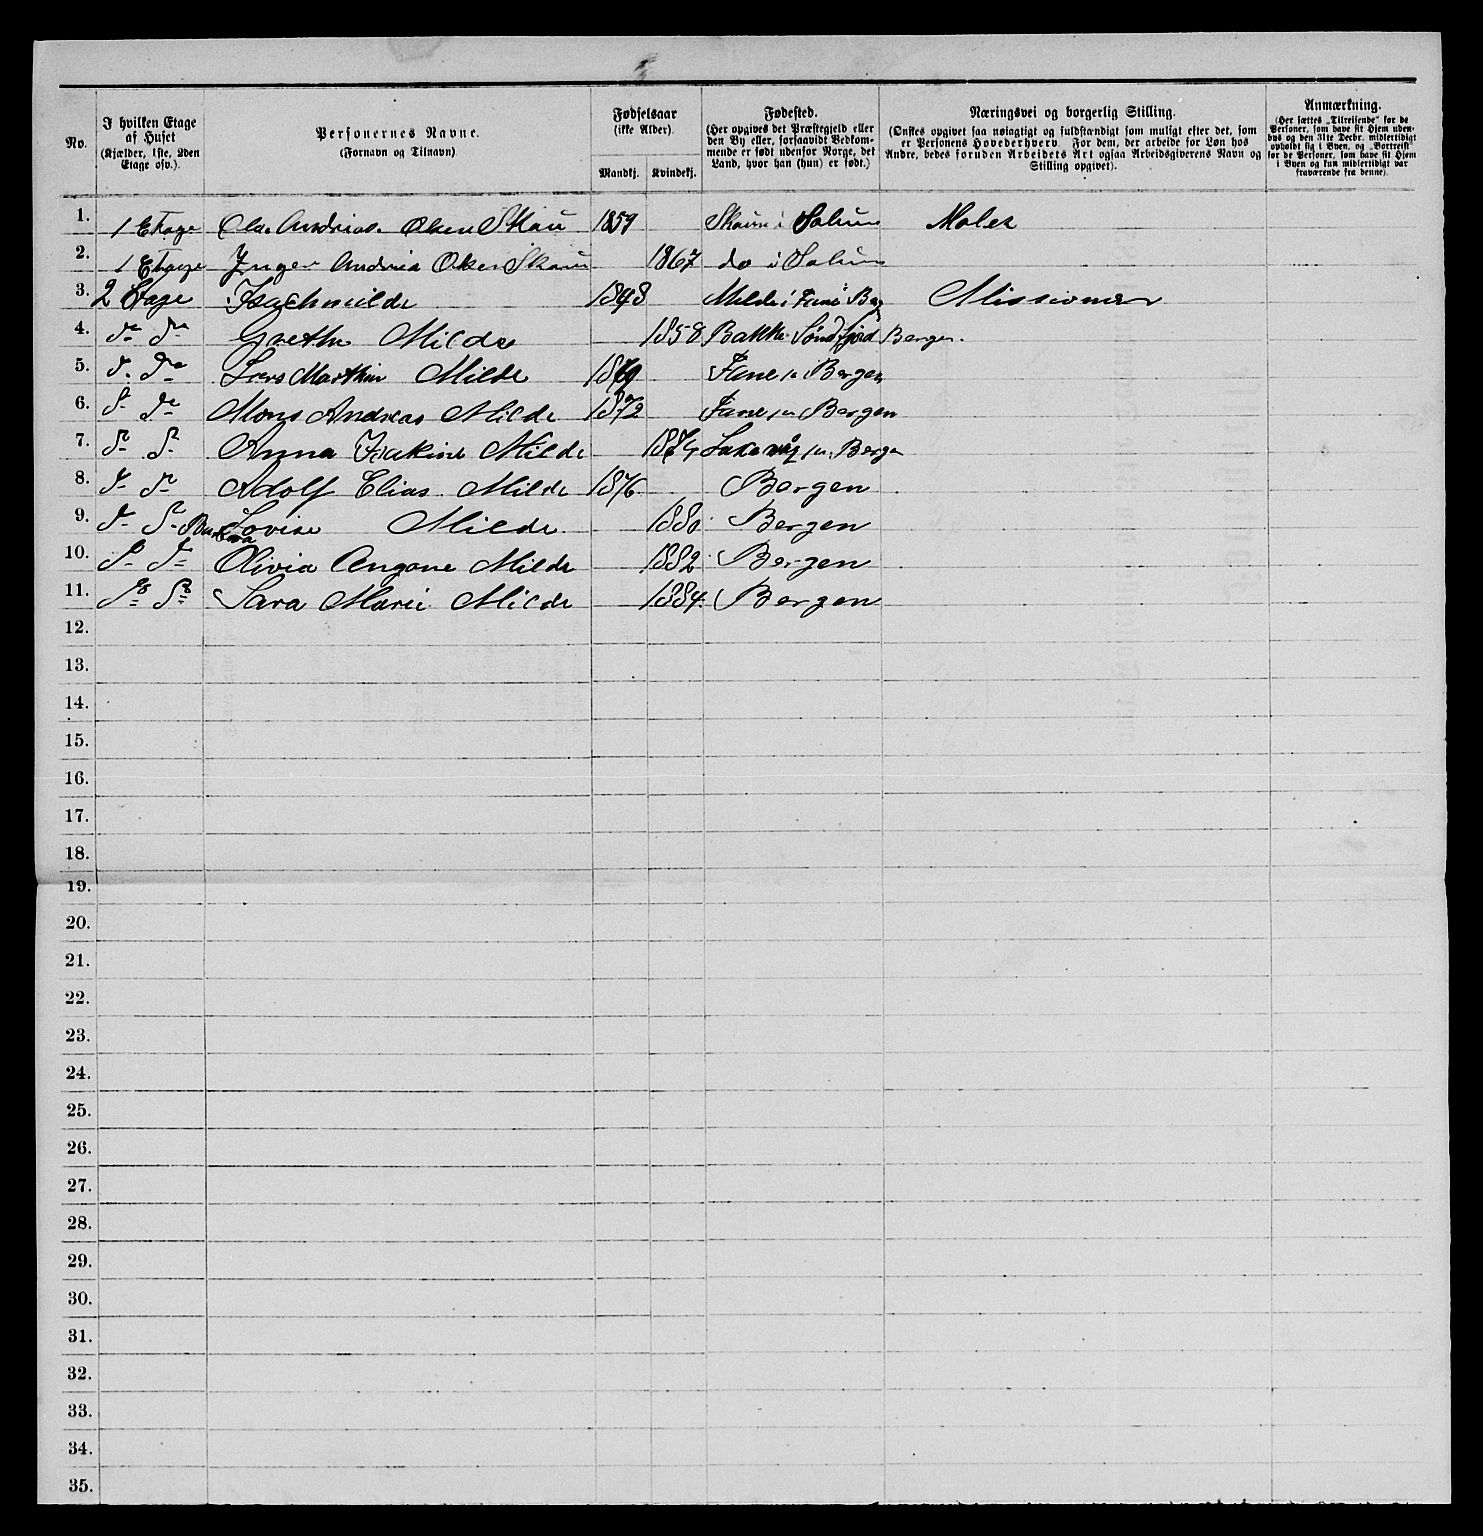 No.
I hvilken Etage af Huset (Kjælder, 1ste, 2den Etage osv.).
Personernes Navne. (Fornavn og Tilnavn)
Fødselsaar (ikke Alder).
Mandkj. Kvindekj.
Fødested. (Her opgives det Præstegjeld eller den By eller, forsaavidt Vedkommende er født udenfor Norge, det Land, hvor han (hun) er født.)
Næringsvei og borgerlig Stilling. (Ønskes opgivet saa nøiagtigt og fuldstændigt som muligt efter det, som er Personens Hovederhverv. For dem, der arbeide for Løn hos Andre, bedes foruden Arbeidets Art ogsaa Arbeidsgiverens Navn og Stilling opgivet).
Anmærkning. (Her sættes „Tilreisende“ for de Personer, som have sit Hjem udenbys og den 31te Decbr. midlertidigt opholdt sig i Byen, og „Bortreist“ for de Personer, som have sit Hjem i Byen og kun midlertidigt var fraværende fra denne).
1. 1 Etage Ole Andrias Olsen Skau 1859 i Solum Maler
2. 1 Etage Inger Andrea Olsen Skau 1867 do i Solum
3. 2 Etage Isach milde 1848 Milde i Fane Missionær
4. do do Grethe Milde 1858 Søndfjord Bergen.
5. do do Lars Marthin Milde 1869 Fane Bergen
6. do do Mons Andreas Milde 1872 Fane Bergen
7. do do Anna Milde Laxevåg Bergen
8. do do Adolf Elias Milde 1876 Bergen
9. do do Barbara Lovise Milde 1880 Bergen
10. do do Olivia Angane Milde 1882 Bergen
11. do do Sara Marie Milde 1884 Bergen
12.
13.
14.
15.
16.
17.
18.
19.
20.
21.
22.
23.
24.
25.
26.
27.
28.
29.
30.
31.
32.
33.
34.
35.